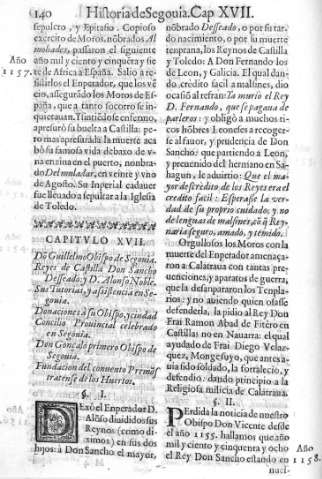 140 Historia de Segouia. Cap XVII.
sepulcro, y Epitafio. Copioso
exercito de Moros, nõbrados Al
mohades, passaron el siguiente
Año
1157.
año mil y ciento y cinquẽta y sie
te de Africa à España. Salio a re-
sistirlos el Emperador, que los vẽ
cio, assegurãdo los Moros de Es-
paña, que a tanto socorro se in-
quietauan. Sintiẽdose enfermo,
apresurò su buelta a Castilla: pe-
ro mas apresurada la muerte aca
bò su famosa vida debaxo de v-
na enzina en el puerto, nonbra-
do Del muladar, en veinte y vno
de Agosto. Su Inperial cadauer
fue lleuado a sepultar a la Iglesia
de Toledo.
CAPITVLO XVII.
Dõ Guillelmo Obispo de Segouia.
Reyes de Castilla Don Sancho
Desseado, y D. Alonso Noble.
Sus Tutorias, y assistencia en Se-
gouia.
Donaciones a su Obispo, y ciudad
Concilio Prouincial celebrado
en Segouia.
Don Gonçalo primero Obispo de
Segouia.
Fundacion del conuento Premõs
tratense de los Huertos.
§. I.
DExò el Enperador D.
Alõso diuididos sus
Reynos (como di-
ximos) en sus dos
hijos: à Don Sancho el mayor,
nõbrado Desseado, o por su tar-
do nacimiento, o por su muerte
tenprana, los Reynos de Castilla
y Toledo: A Don Fernando los
de Leon, y Galicia. El qual dan-
do credito facil a malsines, dio
ocasiõ al refran: Ta murio el Rey
D. Fernando, que se pagaua de
parleros: y obligò a muchos ti-
cos hõbres Leoneses a recoger-
se al fauor, y prudencia de Don
Sancho; que partiendo a Leon,
y preuenido del hermano en Sa-
hagun, le aduirtio: Que el ma-
yor descredito de los Reyes era el
credito facil: Esperasse la ver-
dad de su proprio cuidado, y no
de lenguas de malsines, así Rey-
naria seguro, amado, y temido.
Orgullosos los Moros con la
muerte del Enperador amenaça-
ron a Calatraua con tantas pre-
uenciones, y aparatos de guerra,
que la desanpararon los Tenpla-
rios: y no auiendo quien osasse
defenderla, la pidio al Rey Don
Frai Ramon Abad de Fitero en
Castilla no en Nauarra: el qual
ayudado de Frai Diego Velaz-
quez, Monge suyo, que antes a-
uia sido soldado, la fortalecio, y
defendio. dando principio a la
Religiosa milicia de Calatraua.
§. II.
PErdida la noticia de nuestro
Obispo Don Vicente desde
el año 1155. hallamos que año
mil y ciento y cinquenta y ocho
el Rey Don Sancho estando en
Año
1158.
nuel-